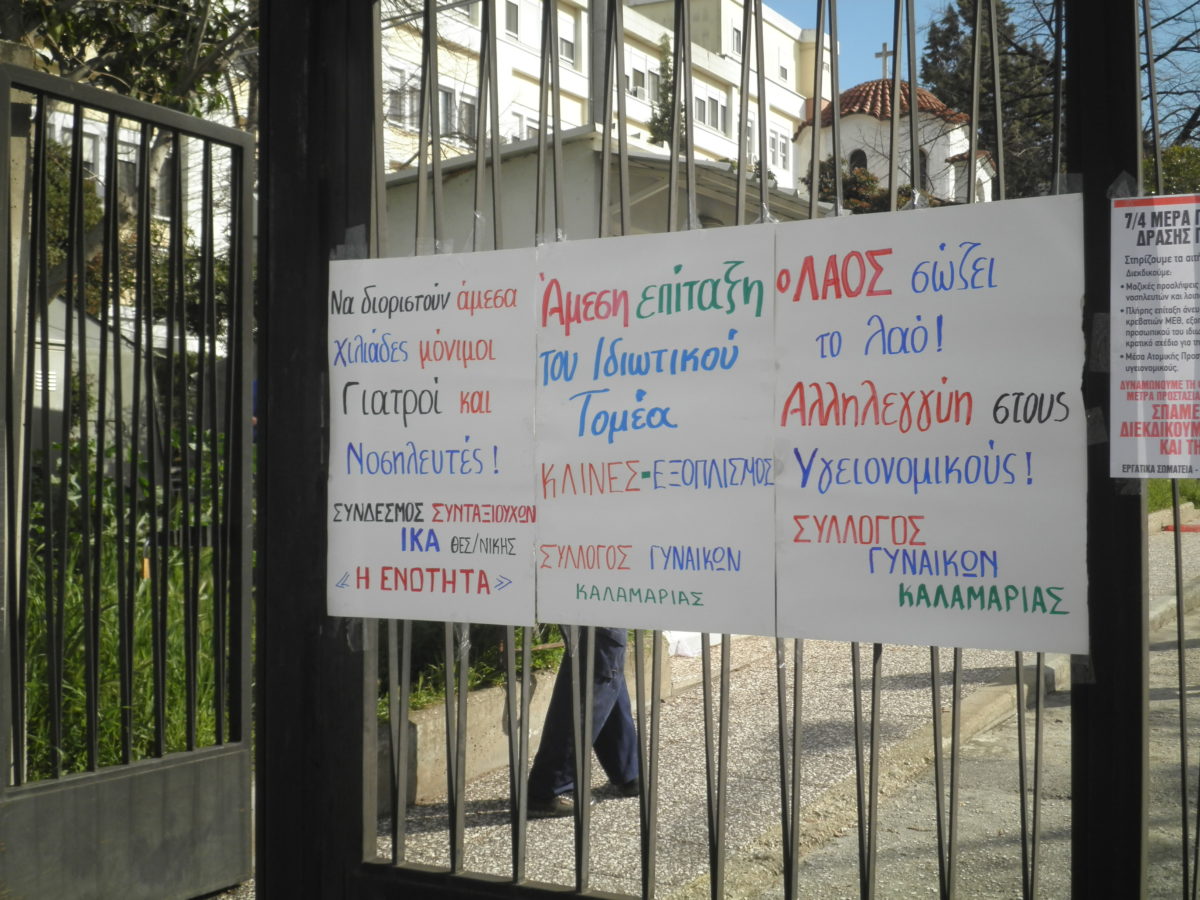 Να διοριστούν άμεσα
χιλιάδες μόνιμοι
Γιατροί και
Νοσηλευτές!
ΣΥΝΔΕΣΜΟΣ ΣΥΝΤΑΞΙΟΥΧΩΝ
ΙΚΑ ΘΕΣ/ΝΙΚΗΣ
«Η ΕΝΟΤΗΤΑ»
Άμεση επίταξη
του Ιδιωτικού
Τομέα
ΚΛΙΝΕΣ-ΕΞΟΠΛΙΣΜΟΣ
ΣΥΛΛΟΓΟΣ ΓΥΝΑΙΚΩΝ
ΚΑΛΑΜΑΡΙΑΣ
Ο ΛΑΟΣ σώζει
το λαό!
Αλληλεγγύη στους
Υγειονομικούς!
ΣΥΛΛΟΓΟΣ
ΓΥΝΑΙΚΩΝ
ΚΑΛΑΜΑΡΙΑΣ
7/4 ΜΕΡΑ
ΔΡΑΣΗΣ
Στηρίζουμε τα
Διεκδικούμε:
• Μαζικές προσλήψεις
νοσηλευτών και
• Πλήρης επίταξη άνευ
κρεβατιών ΜΕΘ,
προσωπικού του
κρατικό σχέδιο για
• Μέσα Ατομικής
υγειονομικούς.
ΔΥΝΑΜΩΝΟΥΜΕ ΤΗ
ΜΕΤΡΑ ΠΡΟΣΤΑΣΙΑ
ΣΠΑΜΕ
ΔΙΕΚΔΙΚΟΥΜ
ΚΑΙ
ΕΡΓΑΤΙΚΑ ΣΩΜΑΤΕΙΑ -